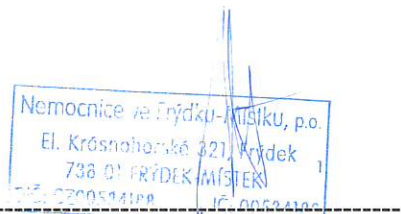 Nemocnice ve Frýdku-Místku, p.o.
El. Krásnohorské 321, Frýdek
738 01 FRÝDEK-MÍSTEK 1
DIČ: CZ00534188 IČ: 00534188